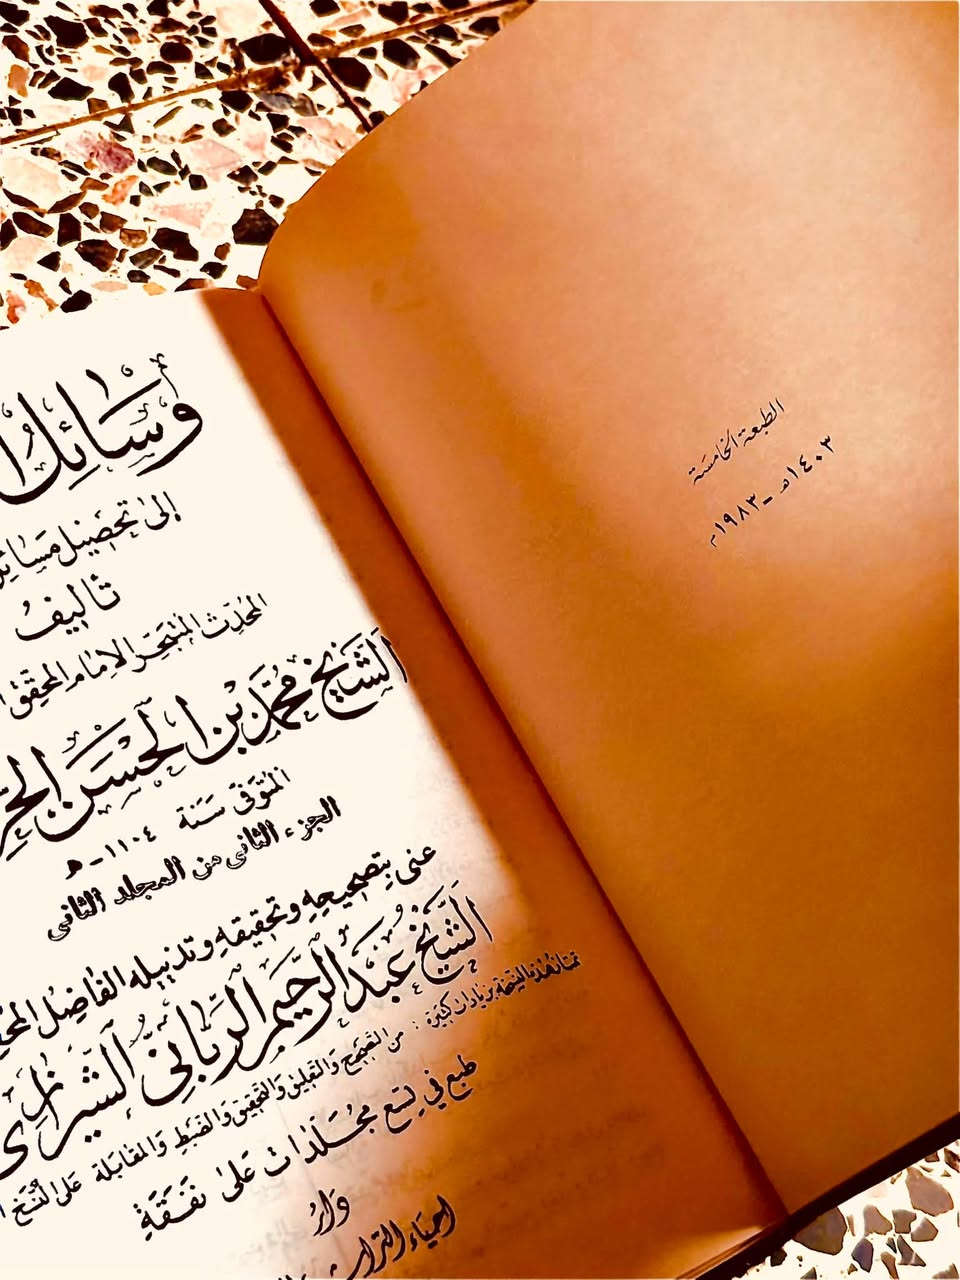 الطبعة الخامسة
١٤٠٣ هـ - ١٩٨٣ م
وَسَائِلُ
إلىٰ تحصيل مسائل
تأليفُ
المُحدّث المُتبحّر الامام المحقّق
الشَّيخ محمَّد بن الحسَن الحرّ
المُتوفّىٰ سَنة ١١٠٤ - هـ
الجزء الثاني من المجلد الثاني
عنىٰ بتصحيحهِ وتحقيقهِ وتذييلهِ الفاضِل
الشَّيخ عَبد الرّحيم الرّبّاني الشّيرازي
تمتاز هذه النسخة بزيادات كثيرة : من التصحيح والتعليق والتحقيق والضبط والمقابلة على النسخ
طبع في تِسع مجلّدات علىٰ نفقَة
دَارُ
احيَاء التراث